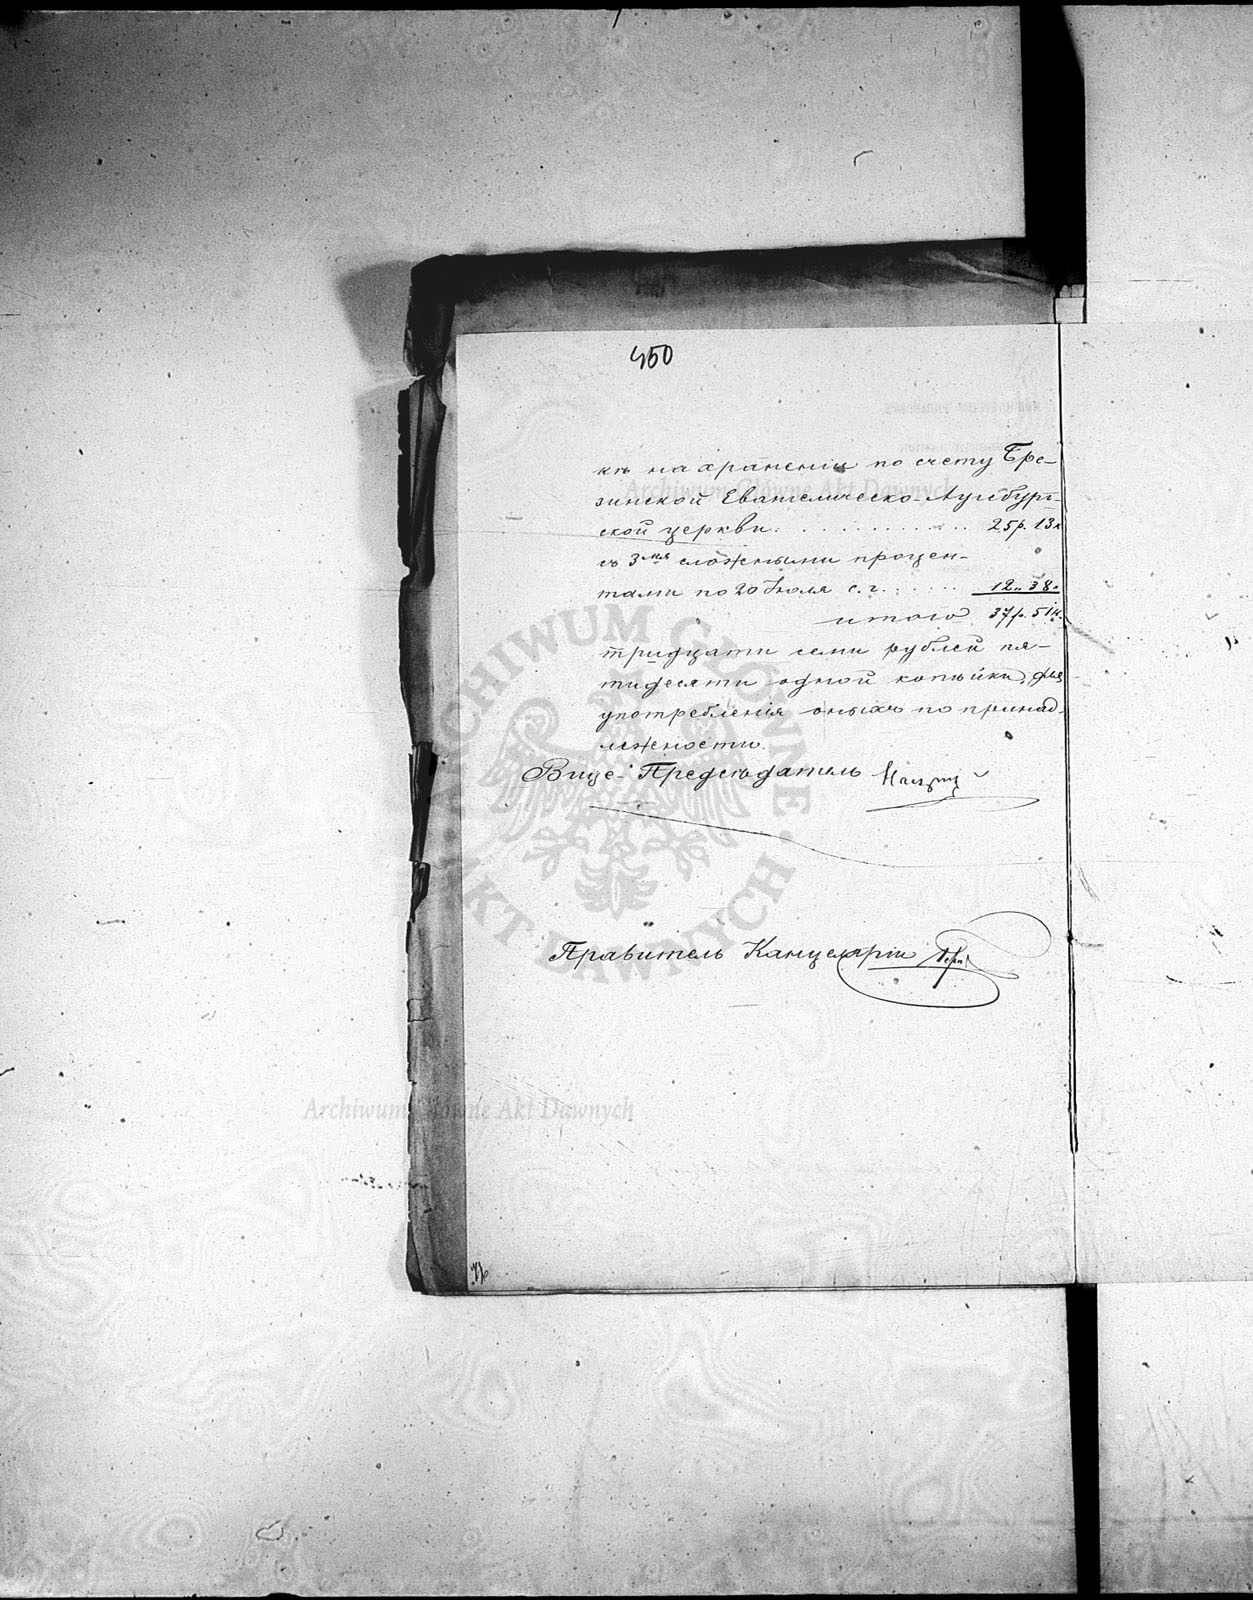 450
къ на храненіи по счету Бре-
зинской Евангелическо-Аугсбург-
ской церкви. . . . . . . . . . . . 25р. 13к
съ 3мя сложными процен-
тами по 20 Іюля с. г. . . . . . 12 „ 38 „
итого 37р. 51к.
тридцати семи рублей пя-
тидесяти одной копѣйки, для
употребленія оныхъ по принад-
лежности.
Вице-Предсѣдатель
Правитель Канцеляріи
Archiwum Główne Akt Dawnych
ARCHIWUM GŁÓWNE AKT DAWNYCH
Archiwum Główne Akt Dawnych